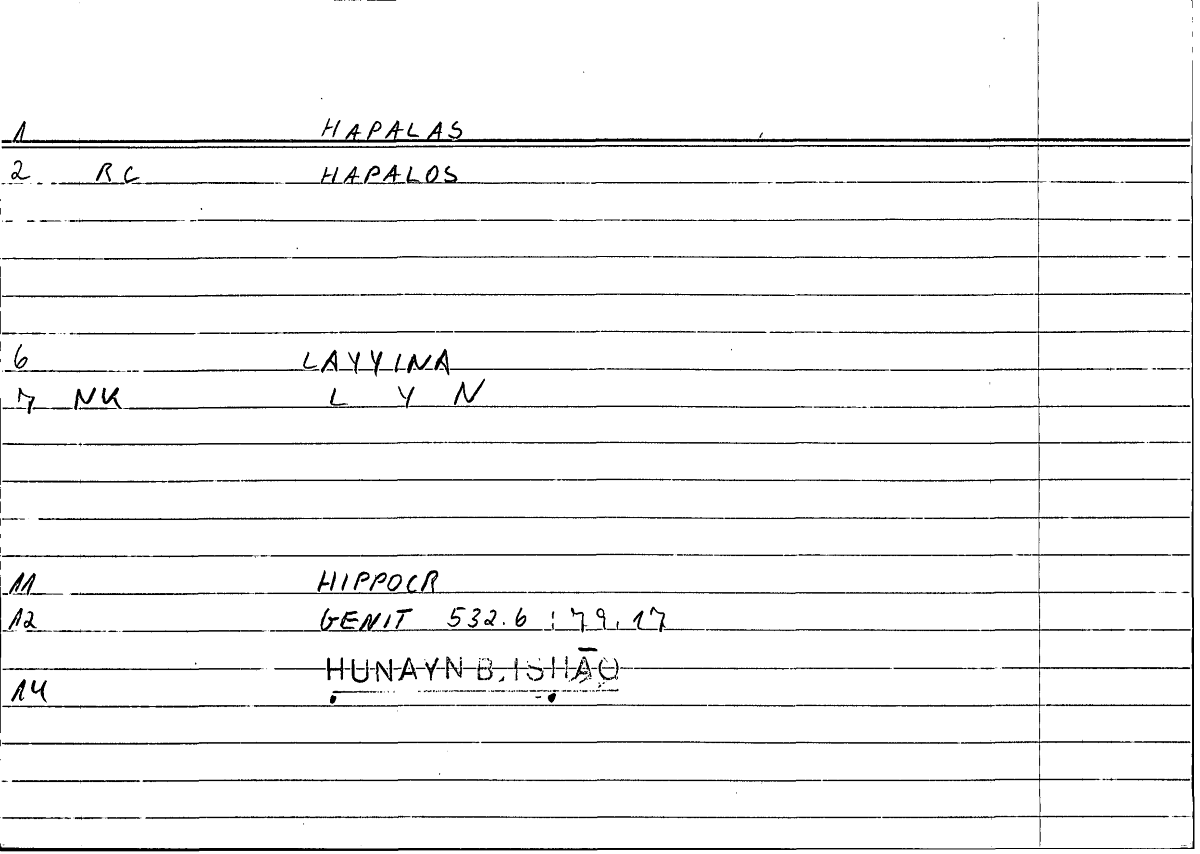 1 HAPALAS
2 RC HAPALOS
6 LAYYINA
7 NK L Y N
11 HIPPOCR
12 GENIT 532.6 : 79,17
ḤUNAYN B. ISḤĀQ
14